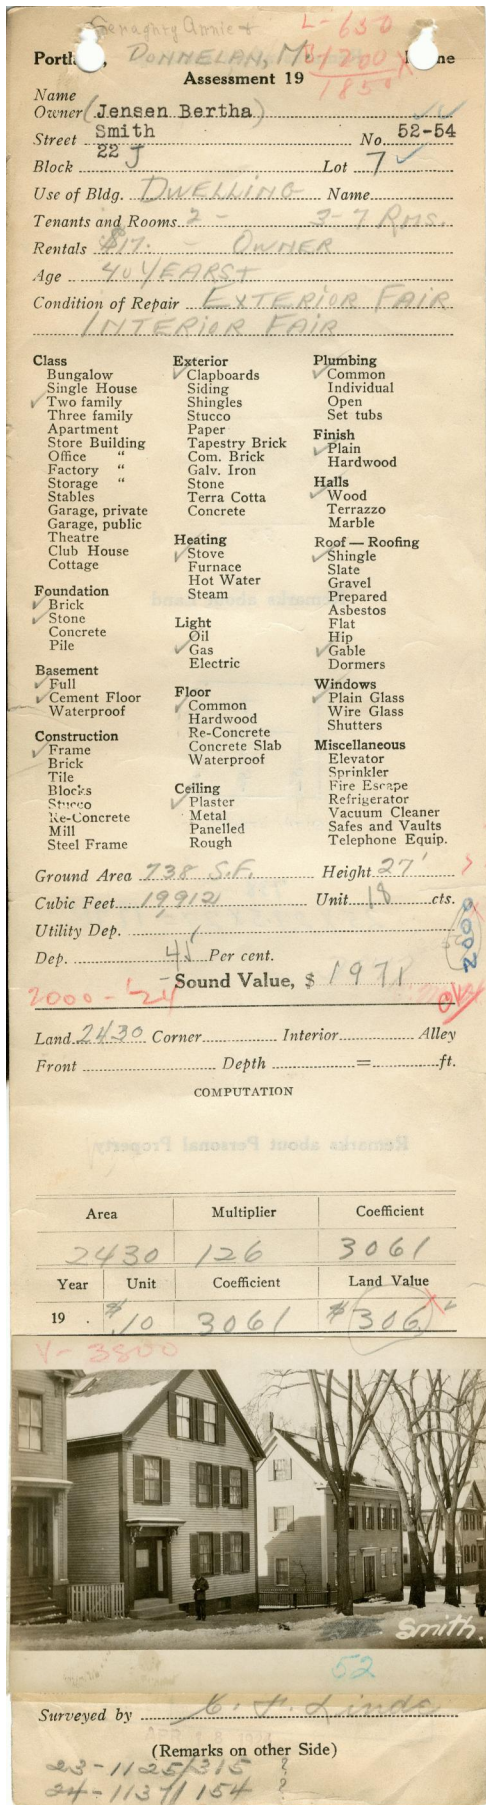 Geraghty Annie &
L- 650
Portland, DONNELAN, M. Maine
B 1200 X
1850
Assessment 19
Name
Owner (Jensen Bertha)
Street Smith No. 52-54
Block 22 J Lot 7
Use of Bldg. DWELLING Name
Tenants and Rooms 2 - 3-7 RMS.
Rentals $17. - OWNER
Age 40 YEARS +
Condition of Repair EXTERIOR FAIR
INTERIOR FAIR
Class
Bungalow
Single House
✓ Two family
Three family
Apartment
Store Building
Office "
Factory "
Storage "
Stables
Garage, private
Garage, public
Theatre
Club House
Cottage
Foundation
✓ Brick
✓ Stone
Concrete
Pile
Basement
✓ Full
✓ Cement Floor
Waterproof
Construction
✓ Frame
Brick
Tile
Blocks
Stucco
Re-Concrete
Mill
Steel Frame
Exterior
✓ Clapboards
Siding
Shingles
Stucco
Paper
Tapestry Brick
Com. Brick
Galv. Iron
Stone
Terra Cotta
Concrete
Heating
✓ Stove
Furnace
Hot Water
Steam
Light
Oil
✓ Gas
Electric
Floor
✓ Common
Hardwood
Re-Concrete
Concrete Slab
Waterproof
Ceiling
✓ Plaster
Metal
Panelled
Rough
Plumbing
✓ Common
Individual
Open
Set tubs
Finish
✓ Plain
Hardwood
Halls
✓ Wood
Terrazzo
Marble
Roof — Roofing
✓ Shingle
Slate
Gravel
Prepared
Asbestos
Flat
Hip
✓ Gable
Dormers
Windows
✓ Plain Glass
Wire Glass
Shutters
Miscellaneous
Elevator
Sprinkler
Fire Escape
Refrigerator
Vacuum Cleaner
Safes and Vaults
Telephone Equip.
Ground Area 738 S.F. Height 27'
Cubic Feet 19912 Unit 18 cts.
Utility Dep.
Dep. 45 Per cent.
2000
Sound Value, $ 1971
2000 - '24
Land 2430 Corner Interior Alley
Front Depth = ft.
COMPUTATION
Area Multiplier Coefficient
2430 126 3061
Year Unit Coefficient Land Value
19 . $.10 3061 $306
V- 3800
Smith.
52
Surveyed by C. F. Linde
(Remarks on other Side)
23-1125/315 ?
24-1137/154 ?